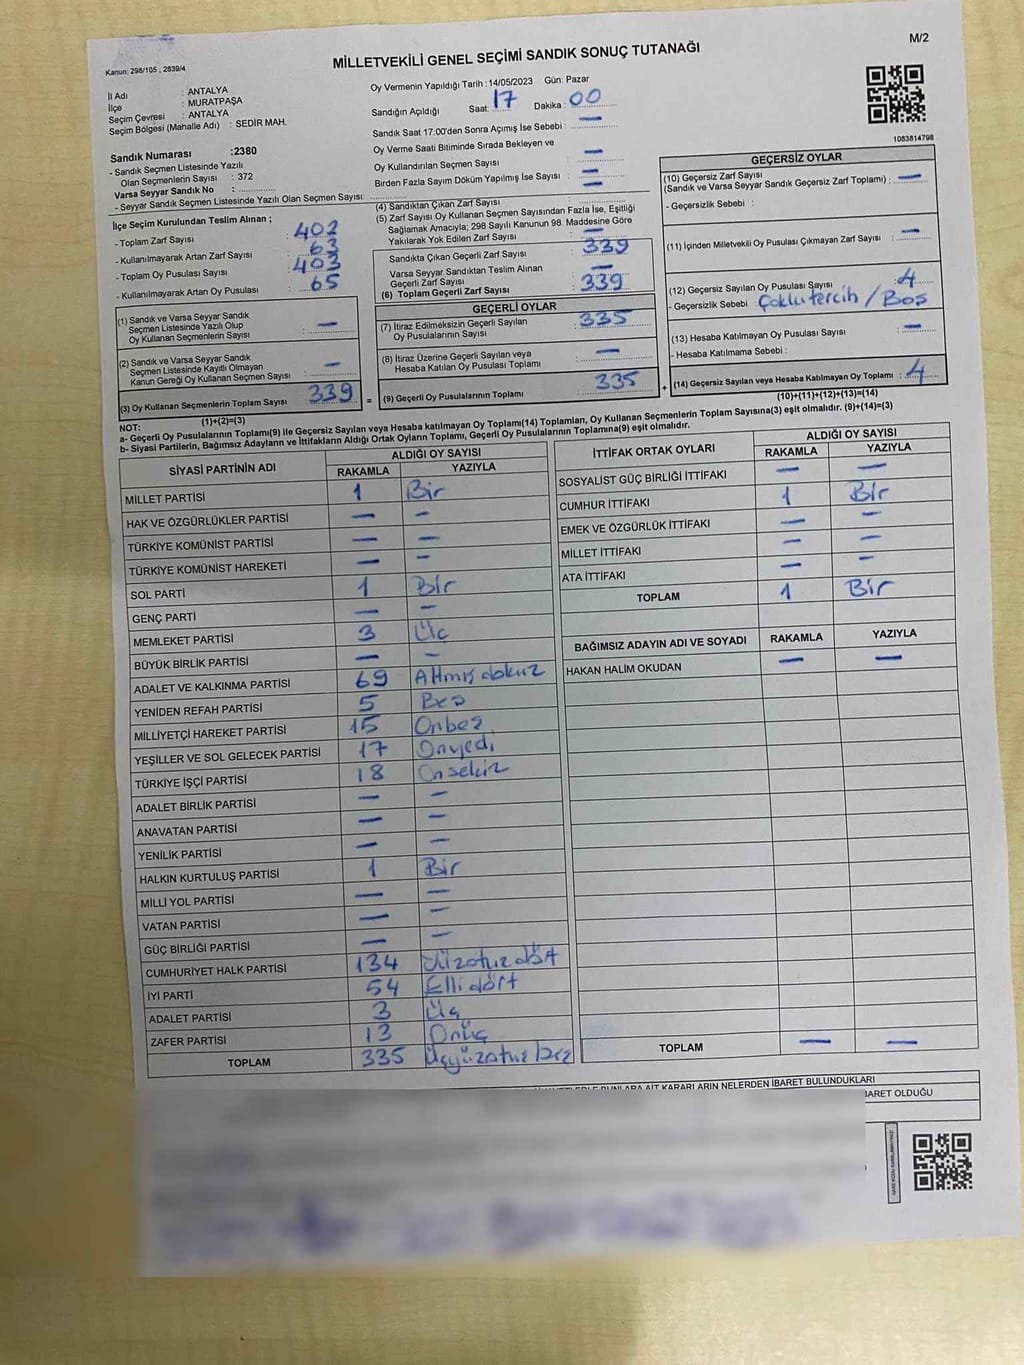 M/2
Kanun: 298/105 , 2839/4
MİLLETVEKİLİ GENEL SEÇİMİ SANDIK SONUÇ TUTANAĞI
İl Adı : ANTALYA
İlçe : MURATPAŞA
Seçim Çevresi : ANTALYA
Seçim Bölgesi (Mahalle Adı) : SEDİR MAH.
Sandık Numarası :2380
- Sandık Seçmen Listesinde Yazılı
Olan Seçmenlerin Sayısı : 372
Varsa Seyyar Sandık No :
- Seyyar Seçmen Listesinde Yazılı Olan Seçmen Sayısı:
Oy Vermenin Yapıldığı Tarih :14/05/2023 Gün: Pazar
Sandığın Açıldığı Saat: 17 Dakika : 00
Sandık Saat 17:00'den Sonra Açımış İse Sebebi : —
Oy Verme Saati Bitiminde Sırada Bekleyen ve
Oy Kullandırılan Seçmen Sayısı : —
Birden Fazla Sayım Döküm Yapılmış İse Sayısı : —
1083814798
İlçe Seçim Kurulundan Teslim Alınan ;
- Toplam Zarf Sayısı : 402
- Kullanılmayarak Artan Zarf Sayısı : 63
- Toplam Oy Pusulası Sayısı : 403
- Kullanılmayarak Artan Oy Pusulası : 65
(1) Sandık ve Varsa Seyyar Sandık
Seçmen Listesinde Yazılı Olup
Oy Kullanan Seçmenlerin Sayısı : —
(2) Sandık ve Varsa Seyyar Sandık
Seçmen Listesinde Kayıtlı Olmayan
Kanun Gereği Oy Kullanan Seçmen Sayısı : —
(3) Oy Kullanan Seçmenlerin Toplam Sayısı : 339
(1)+(2)=(3)
(4) Sandıktan Çıkan Zarf Sayısı : —
(5) Zarf Sayısı Oy Kullanan Seçmen Sayısından Fazla İse, Eşitliği
Sağlamak Amacıyla; 298 Sayılı Kanunun 98. Maddesine Göre
Yakılarak Yok Edilen Zarf Sayısı : —
Sandıkta Çıkan Geçerli Zarf Sayısı : 339
Varsa Seyyar Sandıktan Teslim Alınan
Geçerli Zarf Sayısı : —
(6) Toplam Geçerli Zarf Sayısı : 339
GEÇERLİ OYLAR
(7) İtiraz Edilmeksizin Geçerli Sayılan
Oy Pusulalarının Sayısı : 335
(8) İtiraz Üzerine Geçerli Sayılan veya
Hesaba Katılan Oy Pusulası Toplamı : —
= (9) Geçerli Oy Pusulalarının Toplamı : 335 +
GEÇERSİZ OYLAR
(10) Geçersiz Zarf Sayısı
(Sandık ve Varsa Seyyar Sandık Geçersiz Zarf Toplamı) : —
- Geçersizlik Sebebi :
(11) İçinden Milletvekili Oy Pusulası Çıkmayan Zarf Sayısı : —
(12) Geçersiz Sayılan Oy Pusulası Sayısı : 4
- Geçersizlik Sebebi : Çoklu tercih / Boş
(13) Hesaba Katılmayan Oy Pusulası Sayısı : —
- Hesaba Katılmama Sebebi :
(14) Geçersiz Sayılan veya Hesaba Katılmayan Oy Toplamı : 4
(10)+(11)+(12)+(13)=(14)
NOT:
a- Geçerli Oy Pusulalarının Toplamı(9) ile Geçersiz Sayılan veya Hesaba katılmayan Oy Toplamı(14) Toplamları, Oy Kullanan Seçmenlerin Toplam Sayısına(3) eşit olmalıdır. (9)+(14)=(3)
b- Siyasi Partilerin, Bağımsız Adayların ve İttifakların Aldığı Ortak Oyların Toplamı, Geçerli Oy Pusulalarının Toplamına(9) eşit olmalıdır.
SİYASİ PARTİNİN ADI ALDIĞI OY SAYISI
RAKAMLA YAZIYLA
MİLLET PARTİSİ 1 Bir
HAK VE ÖZGÜRLÜKLER PARTİSİ — —
TÜRKİYE KOMÜNİST PARTİSİ — —
TÜRKİYE KOMÜNİST HAREKETİ — —
SOL PARTİ 1 Bir
GENÇ PARTİ — —
MEMLEKET PARTİSİ 3 Üç
BÜYÜK BİRLİK PARTİSİ — —
ADALET VE KALKINMA PARTİSİ 69 Altmışdokuz
YENİDEN REFAH PARTİSİ 5 Beş
MİLLİYETÇİ HAREKET PARTİSİ 15 Onbeş
YEŞİLLER VE SOL GELECEK PARTİSİ 17 Onyedi
TÜRKİYE İŞÇİ PARTİSİ 18 Onsekiz
ADALET BİRLİK PARTİSİ — —
ANAVATAN PARTİSİ — —
YENİLİK PARTİSİ — —
HALKIN KURTULUŞ PARTİSİ 1 Bir
MİLLİ YOL PARTİSİ — —
VATAN PARTİSİ — —
GÜÇ BİRLİĞİ PARTİSİ — —
CUMHURİYET HALK PARTİSİ 134 Yüzotuzdört
İYİ PARTİ 54 Ellidört
ADALET PARTİSİ 3 Üç
ZAFER PARTİSİ 13 Onüç
TOPLAM 335 Üçyüzotuzbeş
İTTİFAK ORTAK OYLARI ALDIĞI OY SAYISI
RAKAMLA YAZIYLA
SOSYALİST GÜÇ BİRLİĞİ İTTİFAKI — —
CUMHUR İTTİFAKI 1 Bir
EMEK VE ÖZGÜRLÜK İTTİFAKI — —
MİLLET İTTİFAKI — —
ATA İTTİFAKI — —
TOPLAM 1 Bir
BAĞIMSIZ ADAYIN ADI VE SOYADI RAKAMLA YAZIYLA
HAKAN HALİM OKUDAN — —
TOPLAM — —
BUNLARA AİT KARARLARIN NELERDEN İBARET BULUNDUKLARI
İBARET OLDUĞU